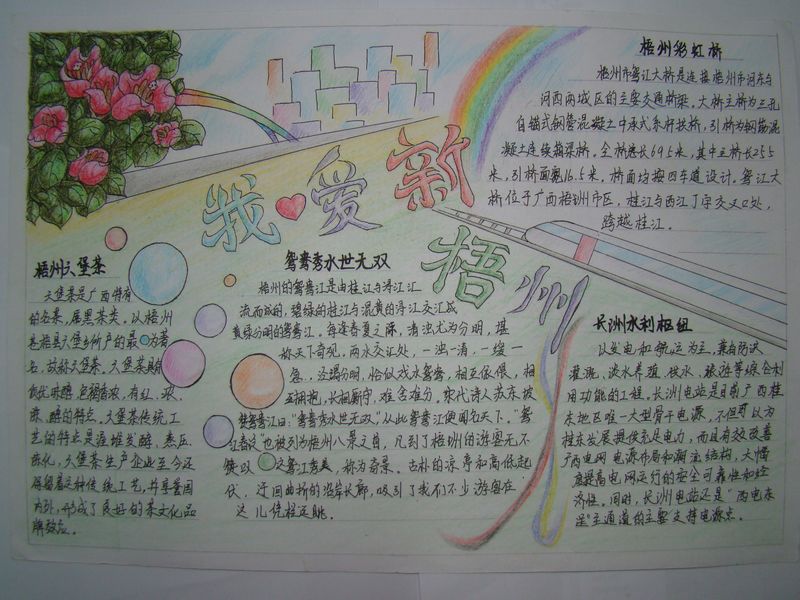 我爱新
梧州
梧州彩虹桥
梧州市鸳江大桥是连接梧州市河东与
河西两城区的主要交通桥梁。大桥主桥为三孔
自锚式钢管混凝土中承式系杆拱桥，引桥为钢筋混
凝土连续箱梁桥。全桥总长695米，其中主桥长255
米，引桥面宽16.5米，桥面均按四车道设计。鸳江大
桥位于广西梧州市区，桂江与西江丁字交叉口处，
跨越桂江。
梧州六堡茶
六堡茶是广西特有
的名茶，属黑茶类。以梧州
苍梧县六堡乡所产的最为著
名，故称六堡茶。六堡茶具有
味醇，色褐香浓，有红、浓、
陈、醇的特点。六堡茶传统工
艺的特点是渥堆发酵、蒸压、
陈化，六堡茶生产企业至今还
保留着这种传统工艺，并享誉国
内外，形成了良好的茶文化品
牌效应。
鸳鸯秀水世无双
梧州的鸳鸯江是由桂江与浔江汇
流而成的，碧绿的桂江与混黄的浔江交汇成
黄绿分明的鸳鸯江，每逢春夏之际，清浊尤为分明，堪
称天下奇观。两水交汇处，一浊一清，一缓一
急，泾渭分明，恰似戏水鸳鸯，相互依偎，相
互拥抱，长相厮守，难舍难分，宋代诗人苏东坡
赞鸳鸯江曰："鸳鸯秀水世无双，"从此鸳鸯江便闻名天下。"鸳
江春泛"也被列为梧州八景之首，凡到了梧州的游客无不
之鸳江秀美，称为奇景。古朴的凉亭和高低起
伏、迂回曲折的沿岸长廊，吸引了我们不少游客在
这儿凭栏远眺。
长洲水利枢纽
以发电和航运为主，兼有防洪
灌溉、淡水养殖、供水、旅游等综合利
用功能的工程。长洲电站是目前广西桂
东地区唯一大型骨干电源，不但可以为
桂东发展提供充足电力，而且有效改善
广西电网电源布局和潮流结构，大幅
度提高电网运行的安全可靠性和经
济性。同时，长洲电站还是"西电东
送"主通道的主要支持电源点。